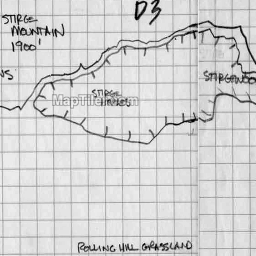 D3
STIRGE
MOUNTAIN
1900'
NS
STIRGEWOO
STIRGE
MapTile
ROLLING HILL GRASSLAND